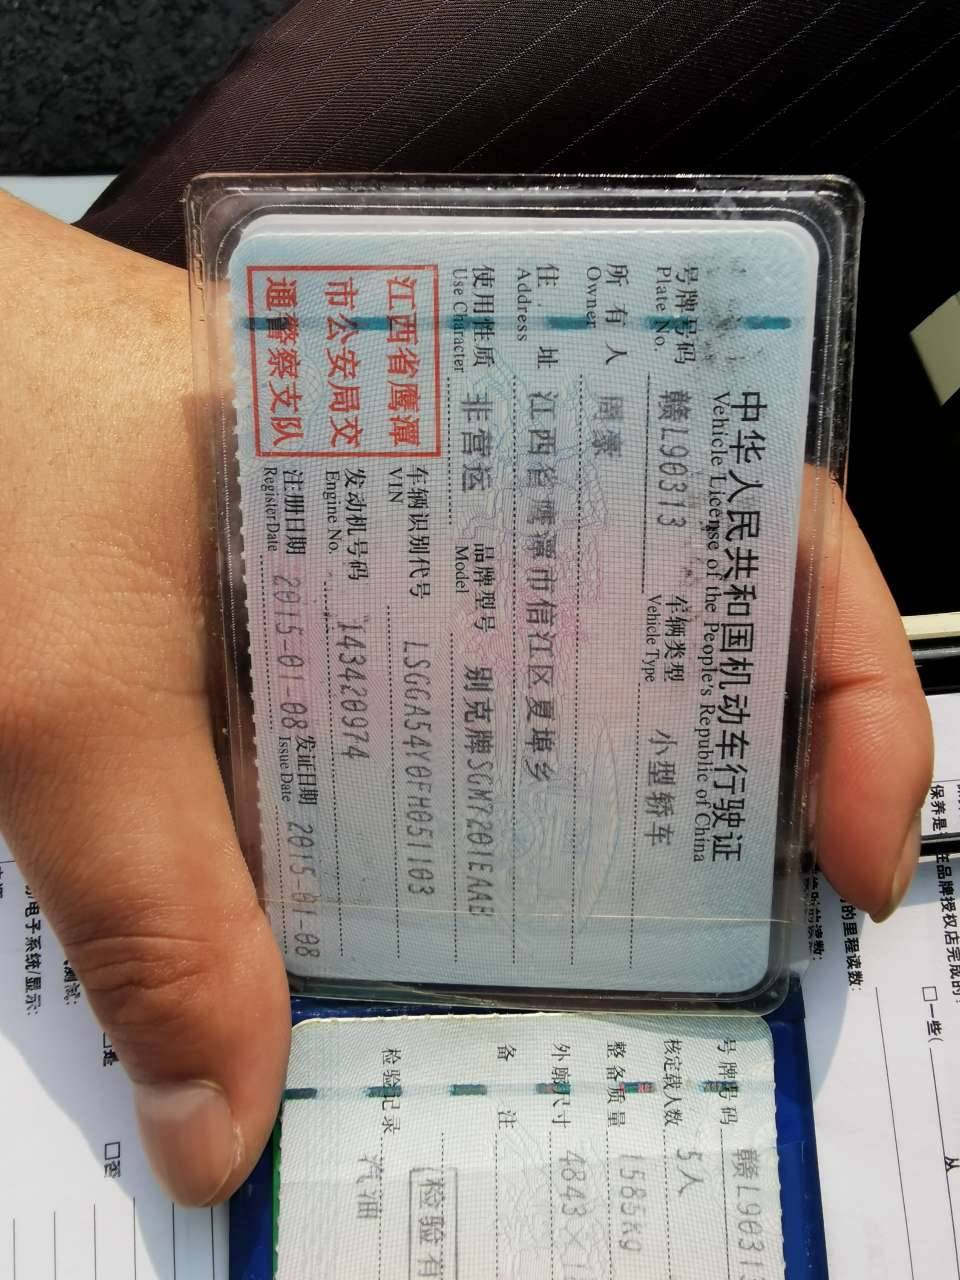 中华人民共和国机动车行驶证
Vehicle License of the People's Republic of China
号牌号码 赣L90313 车辆类型 小型轿车
Plate No. Vehicle Type
所有人 周豪
Owner
住 址 江西省鹰潭市信江区夏埠乡
Address
使用性质 非营运 品牌型号 别克牌SGM7201EAAE
Use Character Model
江西省鹰潭
市公安局交
通警察支队
车辆识别代号 LSGGA54Y0FH051103
VIN
发动机号码 143420974
Engine No.
注册日期 2015-01-08 发证日期 2015-01-08
Register Date Issue Date
号牌号码 赣L9031
核定载人数 5人
整备质量 1585kg
外廓尺寸 4843×1
备 注
检验有
检验记录 汽油
保养是
在品牌授权店完成的:
的里程读数:
□一些(
从
电子系统/显示:
测试: